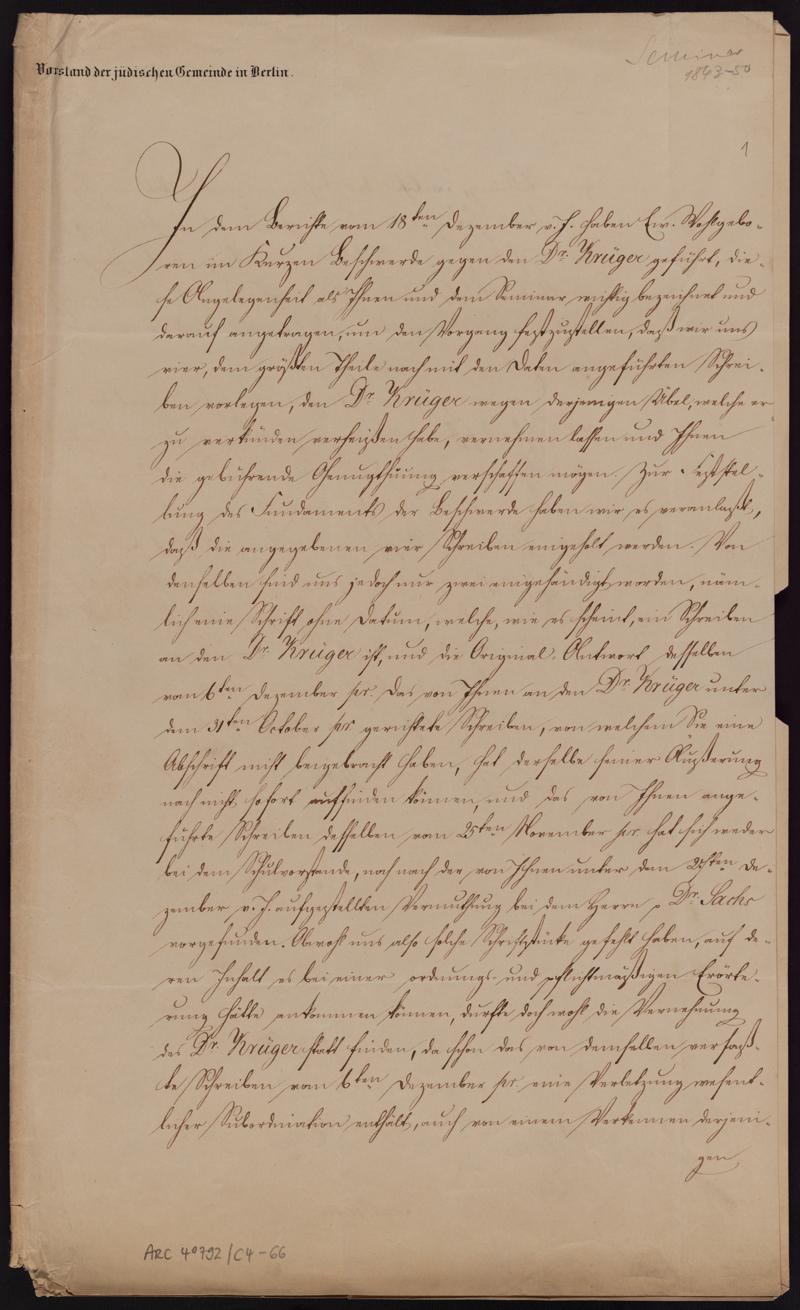 Vorstand der jüdischen Gemeinde in Berlin.
Seminar
1843-50
1
In dem Berichte vom 18ten Dezember v. J. haben Ew. Wohlgebo-
ren im Kurzen Beschwerde gegen den Dr. Krüger geführt, die-
se Angelegenheit als Ihnen und dem Seminar wichtig bezeichnet und
darauf angetragen, um den Vorgang festzustellen, daß wir uns
vier, dem größten Theile nach mit den Daten angeführten Schrei-
ben vorlegen, den Dr. Krüger wegen derjenigen Übel, welche er
zu verkünden verheißen habe, vernehmen lassen und Ihnen
die gebührende Genugthuung verschaffen mögen. Zur Feststel-
lung des Fundaments der Beschwerde haben wir es veranlaßt,
daß die angegebenen vier Schreiben eingeholt werden. Von
denselben sind uns jedoch nur zwei eingehändigt worden, näm-
lich eine Schrift ohne Datum, welche, wie es scheint, ein Schreiben
an den Dr. Krüger ist, und die Original-Antwort desselben
vom 6ten Dezember pr. Das von Ihnen an den Dr. Krüger unter
dem 31ten October pr. gerichtete Schreiben, von welchem Sie eine
Abschrift nicht beigebracht haben, hat derselbe seiner Äußerung
nach nicht sofort auffinden können, und das von Ihnen ange-
führte Schreiben desselben vom 25ten November pr. hat sich weder
bei dem Schulvorstande, noch nach der von Ihnen unter dem De-
zember v. J. aufgestellten Vermuthung bei dem Herrn Dr. Sachs
vorgefunden. Obwohl uns also solche Schriftstücke gefehlt haben, auf de-
ren Inhalt es bei einer ordnungs- und pflichtmäßigen Erörte-
rung hätte ankommen können, durfte doch wohl die Vernehmung
des Dr. Krüger statt finden, da schon das von demselben verfaß-
te Schreiben vom 6ten Dezember pr. eine Verletzung wesent-
licher Subordination enthält, auch von einem Verkennen derjeni-
gen
ARC 4°792/C4-66